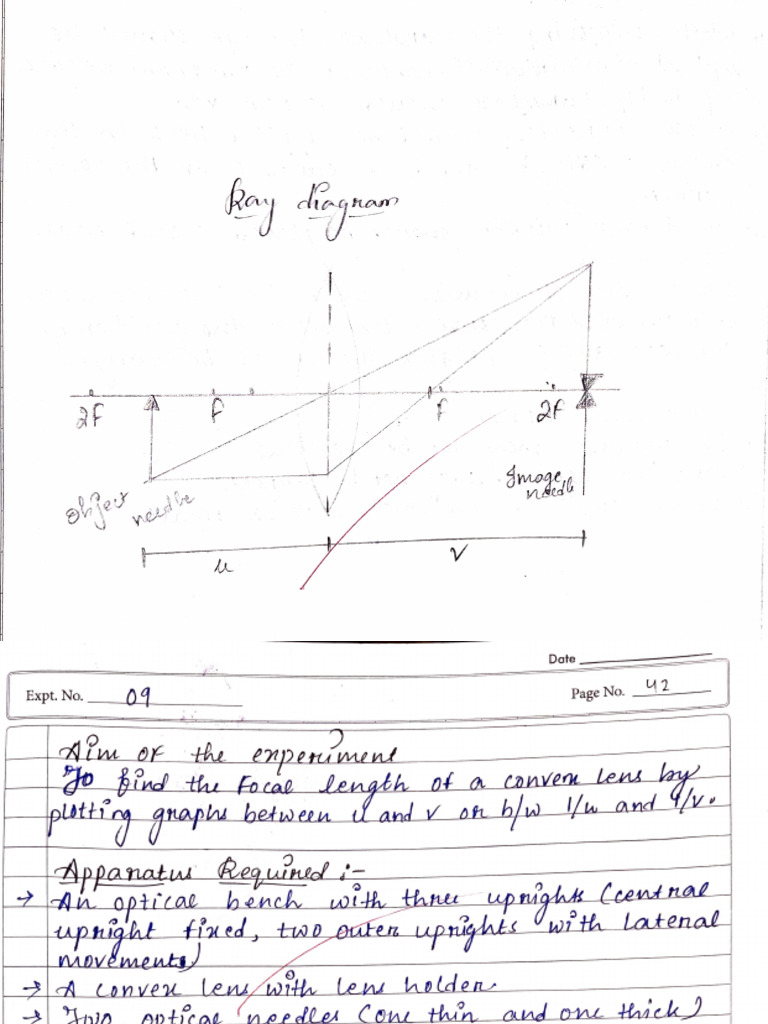 Ray diagram
2F
F
F
2F
Object needle
Image needle
u
v
Date
Expt. No. 09
Page No. 42
Aim of the experiment
To find the Focal length of a convex lens by
plotting graphs between u and v or b/w 1/u and 1/v.
Apparatus Required :-
→ An optical bench with three uprights (central
upright fixed, two outer uprights with lateral
movements)
→ A convex lens with lens holder.
→ Two optical needles (one thin and one thick)